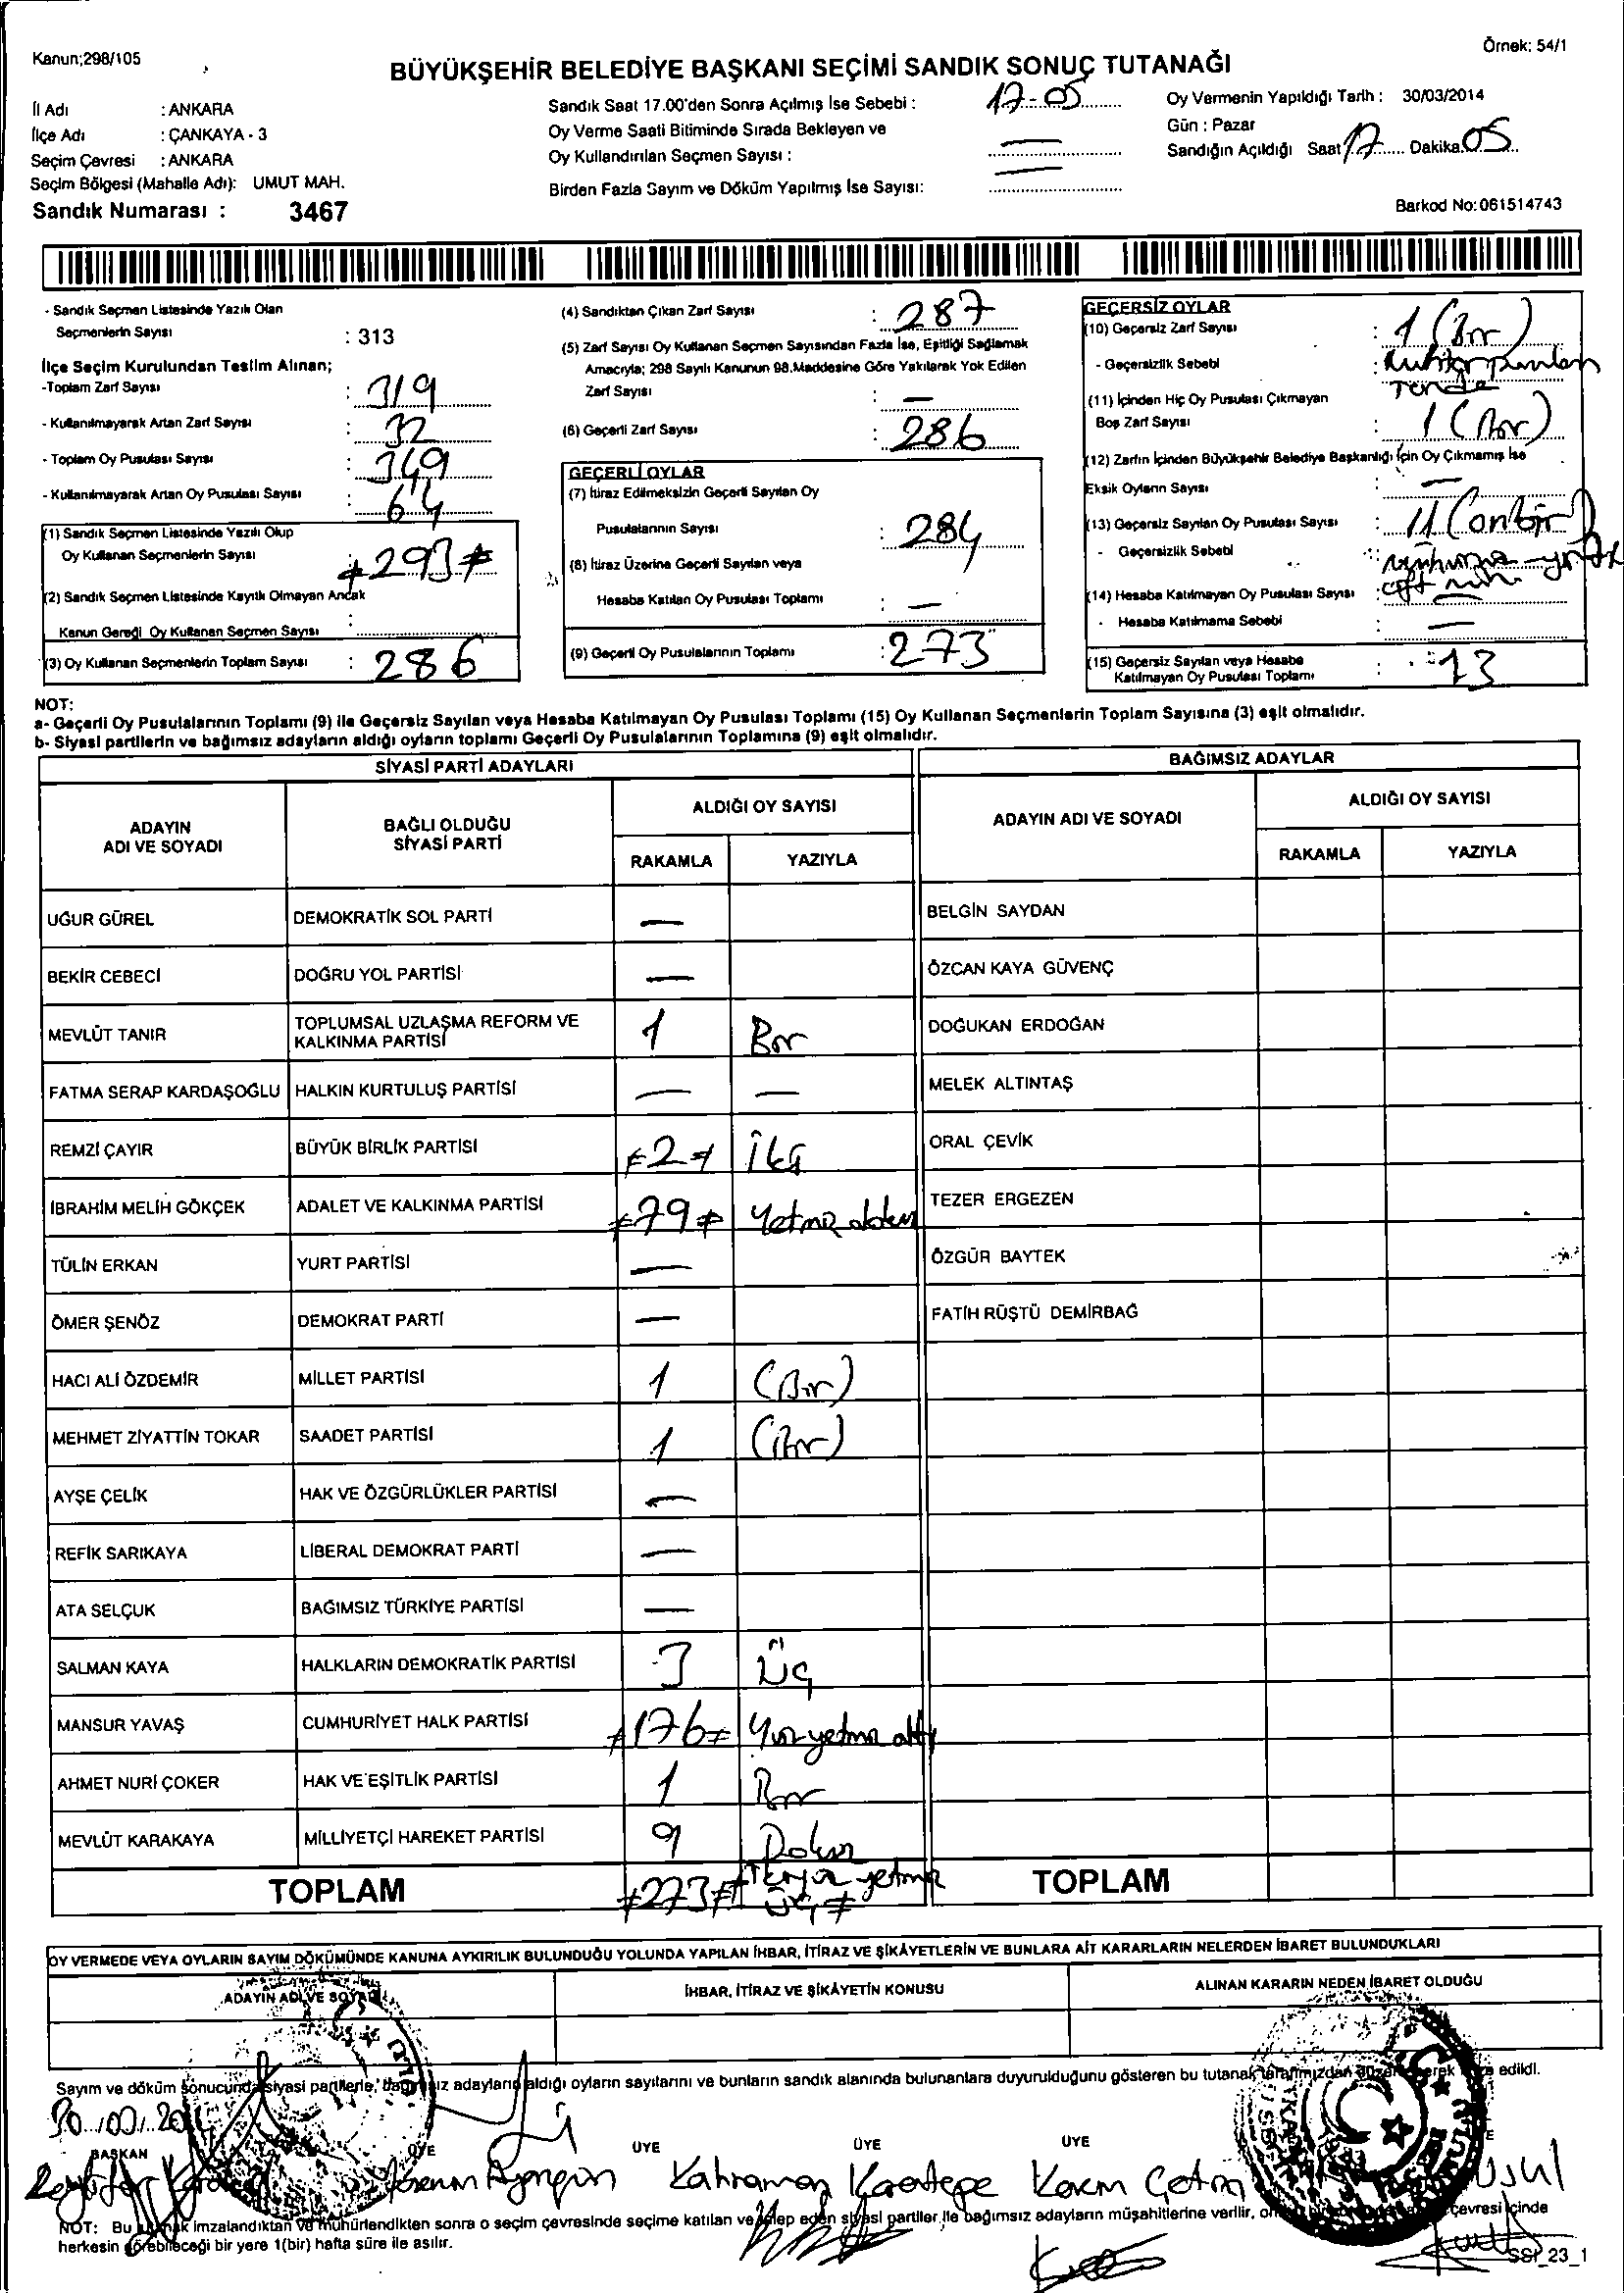 Kanun;298/105
Örnek: 54/1
BÜYÜKŞEHİR BELEDİYE BAŞKANI SEÇİMİ SANDIK SONUÇ TUTANAĞI
İl Adı : ANKARA
İlçe Adı : ÇANKAYA - 3
Seçim Çevresi : ANKARA
Seçim Bölgesi (Mahalle Adı): UMUT MAH.
Sandık Numarası : 3467
Sandık Saat 17.00'den Sonra Açılmış İse Sebebi : 17-05
Oy Verme Saati Bitiminde Sırada Bekleyen ve
Oy Kullandırılan Seçmen Sayısı : —
Birden Fazla Sayım ve Döküm Yapılmış İse Sayısı: —
Oy Vermenin Yapıldığı Tarih : 30/03/2014
Gün : Pazar
Sandığın Açıldığı Saat 17 Dakika 05
Barkod No:061514743
- Sandık Seçmen Listesinde Yazılı Olan
Seçmenlerin Sayısı : 313
İlçe Seçim Kurulundan Teslim Alınan;
-Toplam Zarf Sayısı : 319
- Kullanılmayarak Artan Zarf Sayısı : 32
- Toplam Oy Pusulası Sayısı : 349
- Kullanılmayarak Artan Oy Pusulası Sayısı : 64
(1) Sandık Seçmen Listesinde Yazılı Olup
Oy Kullanan Seçmenlerin Sayısı : #293#
(2) Sandık Seçmen Listesinde Kayıtlı Olmayan Ancak
Kanun Gereği Oy Kullanan Seçmen Sayısı :
(3) Oy Kullanan Seçmenlerin Toplam Sayısı : 286
(4) Sandıktan Çıkan Zarf Sayısı : 287
(5) Zarf Sayısı Oy Kullanan Seçmen Sayısından Fazla İse, Eşitliği Sağlamak
Amacıyla; 298 Sayılı Kanunun 98.Maddesine Göre Yakılarak Yok Edilen
Zarf Sayısı : —
(6) Geçerli Zarf Sayısı : 286
GEÇERLİ OYLAR
(7) İtiraz Edilmeksizin Geçerli Sayılan Oy
Pusulalarının Sayısı : 284
(8) İtiraz Üzerine Geçerli Sayılan veya
Hesaba Katılan Oy Pusulası Toplamı : —
(9) Geçerli Oy Pusulalarının Toplamı : 273
GEÇERSİZ OYLAR
(10) Geçersiz Zarf Sayısı : 1 (Bir)
- Geçersizlik Sebebi :
(11) İçinden Hiç Oy Pusulası Çıkmayan
Boş Zarf Sayısı : 1 (Bir)
(12) Zarfın İçinden Büyükşehir Belediye Başkanlığı İçin Oy Çıkmamış İse
Eksik Oyların Sayısı : —
(13) Geçersiz Sayılan Oy Pusulası Sayısı : 11 (onbir)
- Geçersizlik Sebebi :
(14) Hesaba Katılmayan Oy Pusulası Sayısı : —
- Hesaba Katılmama Sebebi : —
(15) Geçersiz Sayılan veya Hesaba
Katılmayan Oy Pusulası Toplamı : 13
NOT:
a- Geçerli Oy Pusulalarının Toplamı (9) ile Geçersiz Sayılan veya Hesaba Katılmayan Oy Pusulası Toplamı (15) Oy Kullanan Seçmenlerin Toplam Sayısına (3) eşit olmalıdır.
b- Siyasi partilerin ve bağımsız adayların aldığı oyların toplamı Geçerli Oy Pusulalarının Toplamına (9) eşit olmalıdır.
SİYASİ PARTİ ADAYLARI
ADAYIN ADI VE SOYADI
BAĞLI OLDUĞU SİYASİ PARTİ
ALDIĞI OY SAYISI
RAKAMLA YAZIYLA
UĞUR GÜREL DEMOKRATİK SOL PARTİ —
BEKİR CEBECİ DOĞRU YOL PARTİSİ —
MEVLÜT TANIR TOPLUMSAL UZLAŞMA REFORM VE KALKINMA PARTİSİ 1 Bir
FATMA SERAP KARDAŞOĞLU HALKIN KURTULUŞ PARTİSİ — —
REMZİ ÇAYIR BÜYÜK BİRLİK PARTİSİ #2# İki
İBRAHİM MELİH GÖKÇEK ADALET VE KALKINMA PARTİSİ #79# Yetmiş dokuz
TÜLİN ERKAN YURT PARTİSİ —
ÖMER ŞENÖZ DEMOKRAT PARTİ —
HACI ALİ ÖZDEMİR MİLLET PARTİSİ 1 (Bir)
MEHMET ZİYATTİN TOKAR SAADET PARTİSİ 1 (Bir)
AYŞE ÇELİK HAK VE ÖZGÜRLÜKLER PARTİSİ —
REFİK SARIKAYA LİBERAL DEMOKRAT PARTİ —
ATA SELÇUK BAĞIMSIZ TÜRKİYE PARTİSİ —
SALMAN KAYA HALKLARIN DEMOKRATİK PARTİSİ 3 Üç
MANSUR YAVAŞ CUMHURİYET HALK PARTİSİ #176# Yüz yetmiş altı
AHMET NURİ ÇOKER HAK VE EŞİTLİK PARTİSİ 1 Bir
MEVLÜT KARAKAYA MİLLİYETÇİ HAREKET PARTİSİ 9 Dokuz
TOPLAM #273# İkiyüz yetmiş üç #
BAĞIMSIZ ADAYLAR
ADAYIN ADI VE SOYADI
ALDIĞI OY SAYISI
RAKAMLA YAZIYLA
BELGİN SAYDAN
ÖZCAN KAYA GÜVENÇ
DOĞUKAN ERDOĞAN
MELEK ALTINTAŞ
ORAL ÇEVİK
TEZER ERGEZEN
ÖZGÜR BAYTEK
FATİH RÜŞTÜ DEMİRBAĞ
TOPLAM
OY VERMEDE VEYA OYLARIN SAYIM DÖKÜMÜNDE KANUNA AYKIRILIK BULUNDUĞU YOLUNDA YAPILAN İHBAR, İTİRAZ VE ŞİKÂYETLERİN VE BUNLARA AİT KARARLARIN NELERDEN İBARET BULUNDUKLARI
ADAYIN ADI VE SOYADI
İHBAR, İTİRAZ VE ŞİKÂYETİN KONUSU
ALINAN KARARIN NEDEN İBARET OLDUĞU
Sayım ve döküm sonucunda siyasi partilerle, bağımsız adayların aldığı oyların sayılarını ve bunların sandık alanında bulunanlara duyurulduğunu gösteren bu tutanak tarafımızdan edildi.
BAŞKAN ÜYE ÜYE ÜYE ÜYE
Kahraman Karatepe
NOT: Bu imzalandıktan ve mühürlendikten sonra o seçim çevresinde seçime katılan ve talep eden siyasi partiler ile bağımsız adayların müşahitlerine verilir, çevresi içinde
herkesin görebileceği bir yere 1(bir) hafta süre ile asılır.
SSI_23_1